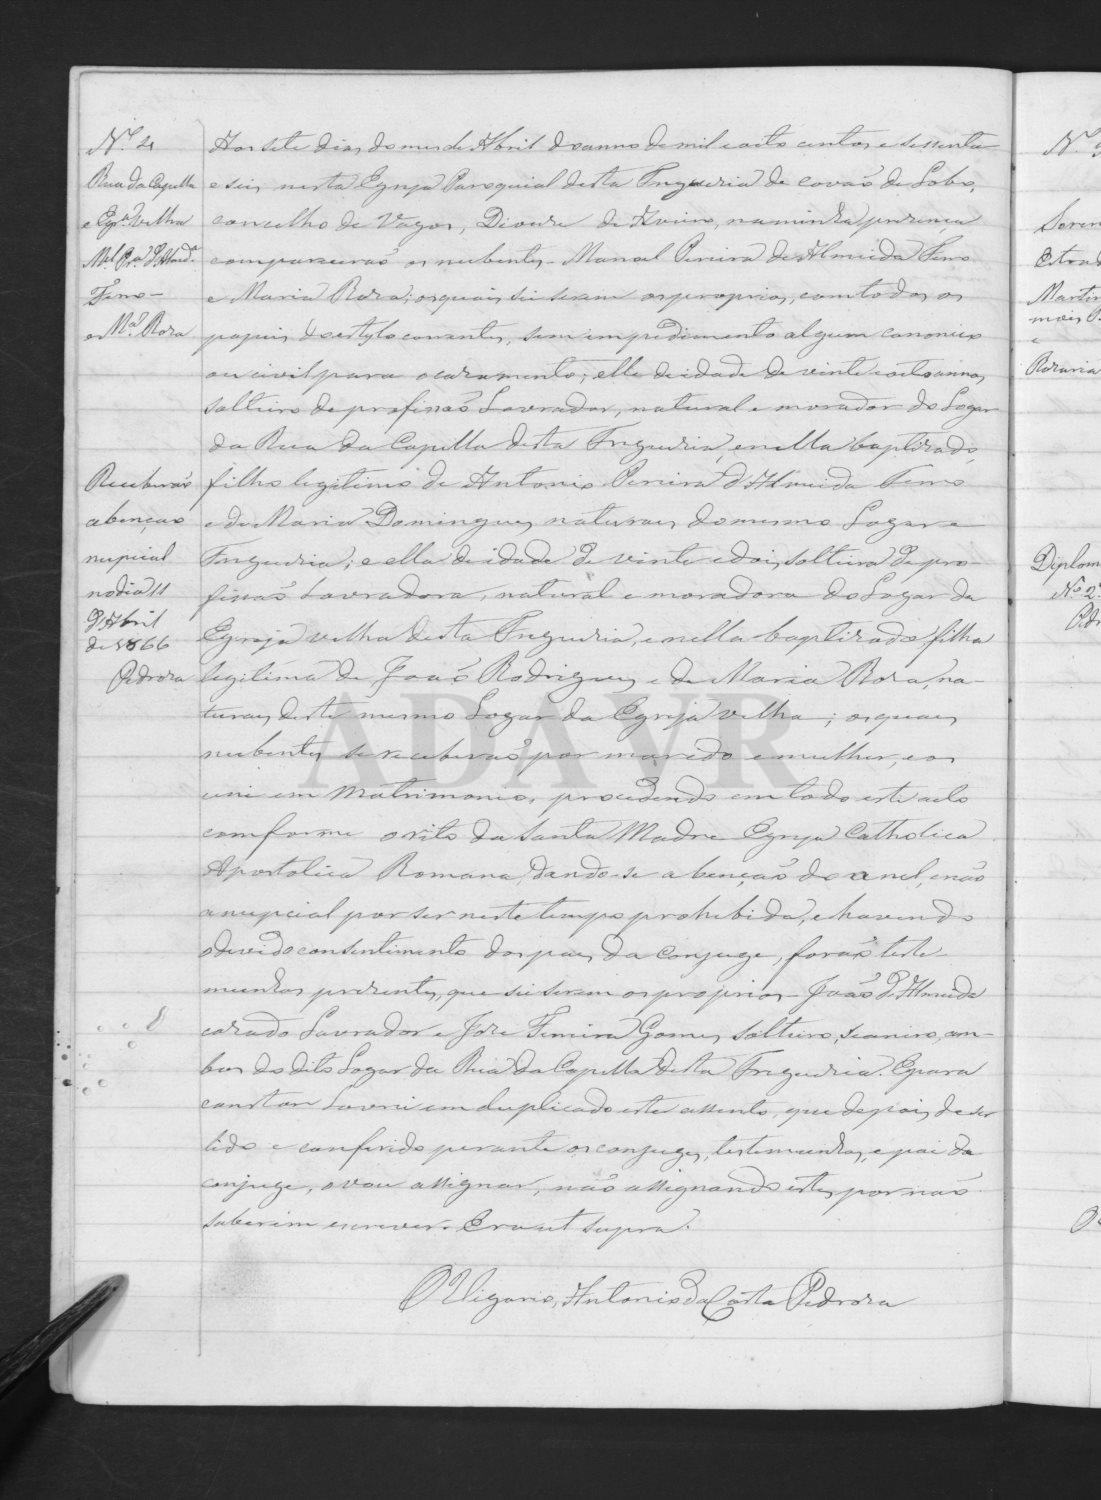 N.º 4
Rua da Capella
e Egr.ª velha
M.el Pr.ª d'Almd.ª
Ferro -
e M.ª Roza
Receberaõ
a bençaõ
nupcial
no dia 11
d'Abril
de 1866
Pedroza
Aos sete dias do mez de Abril do anno de mil e oito centos e sessenta
e seis nesta Egreja Paroquial desta Freguezia de Covaõ do Lobo,
concelho de Vagos, Diocese de Aveiro, na minha prezença
compareceraõ os nubentes - Manoel Pereira de Almeida Ferro
e Maria Roza; os quais sei serem os proprios, com todos os
papeis do estylo correntes, sem impedimento algum canonico
ou civil para o cazamento; elle de idade de vinte e oito annos,
solteiro de profissaõ Lavrador, natural e morador do Logar
da Rua da Capella desta Freguezia, e nella baptizado,
filho legitimo de Antonio Pereira d'Almeida Ferro
e de Maria Domingues, naturaes do mesmo Logar e
Freguezia; e ella de idade de vinte e dois, solteira de pro-
fissaõ Lavradora, natural e moradora do Logar da
Egreja velha desta Freguezia, e nella baptizada, filha
legitima de Joaõ Rodrigues e de Maria Roza, na-
turaes deste mesmo Logar da Egreja velha; os quaes
nubentes se receberaõ por marido e mulher, e os
uni em Matrimonio, procedendo em todo este acto
comforme o rito da Santa Madre Egreja Catholica
Apostolica Romana, dando-se a bençaõ do anel, e naõ
a nupcial por ser neste tempo prohibida, e havendo
o devido consentimento dos paes da conjuge, foraõ teste-
munhas prezentes, que sei serem os proprios - Joaõ d'Almeida
cazado Lavrador e Joze Ferreira Gomes, solteiro, seareiro, am-
bos do dito Logar da Rua da Capella desta Freguezia. E para
constar Lavrei em duplicado este assento, que depois de ser
lido e conferido perante os conjuges, testemunhas, e pai da
conjuge, o vou assignar, naõ assignando estes por naõ
saberem escrever. Era ut supra.
O Vigario, Antonio da Costa Pedroza
ADAVR
N.º
Estrad
Martin
e
Rozaria
Diplom
N.º 2